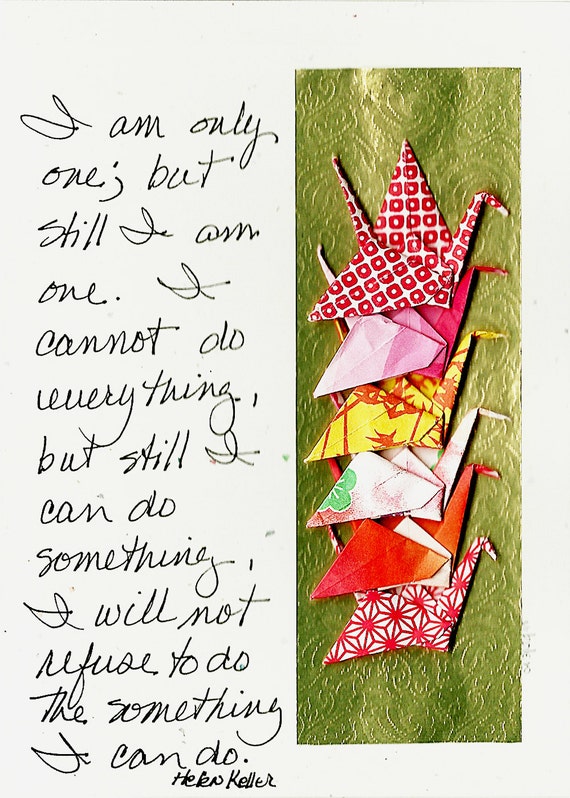 I am only
one; but
still I am
one. I
cannot do
everything,
but still I
can do
something,
I will not
refuse to do
the something
I can do.
Helen Keller